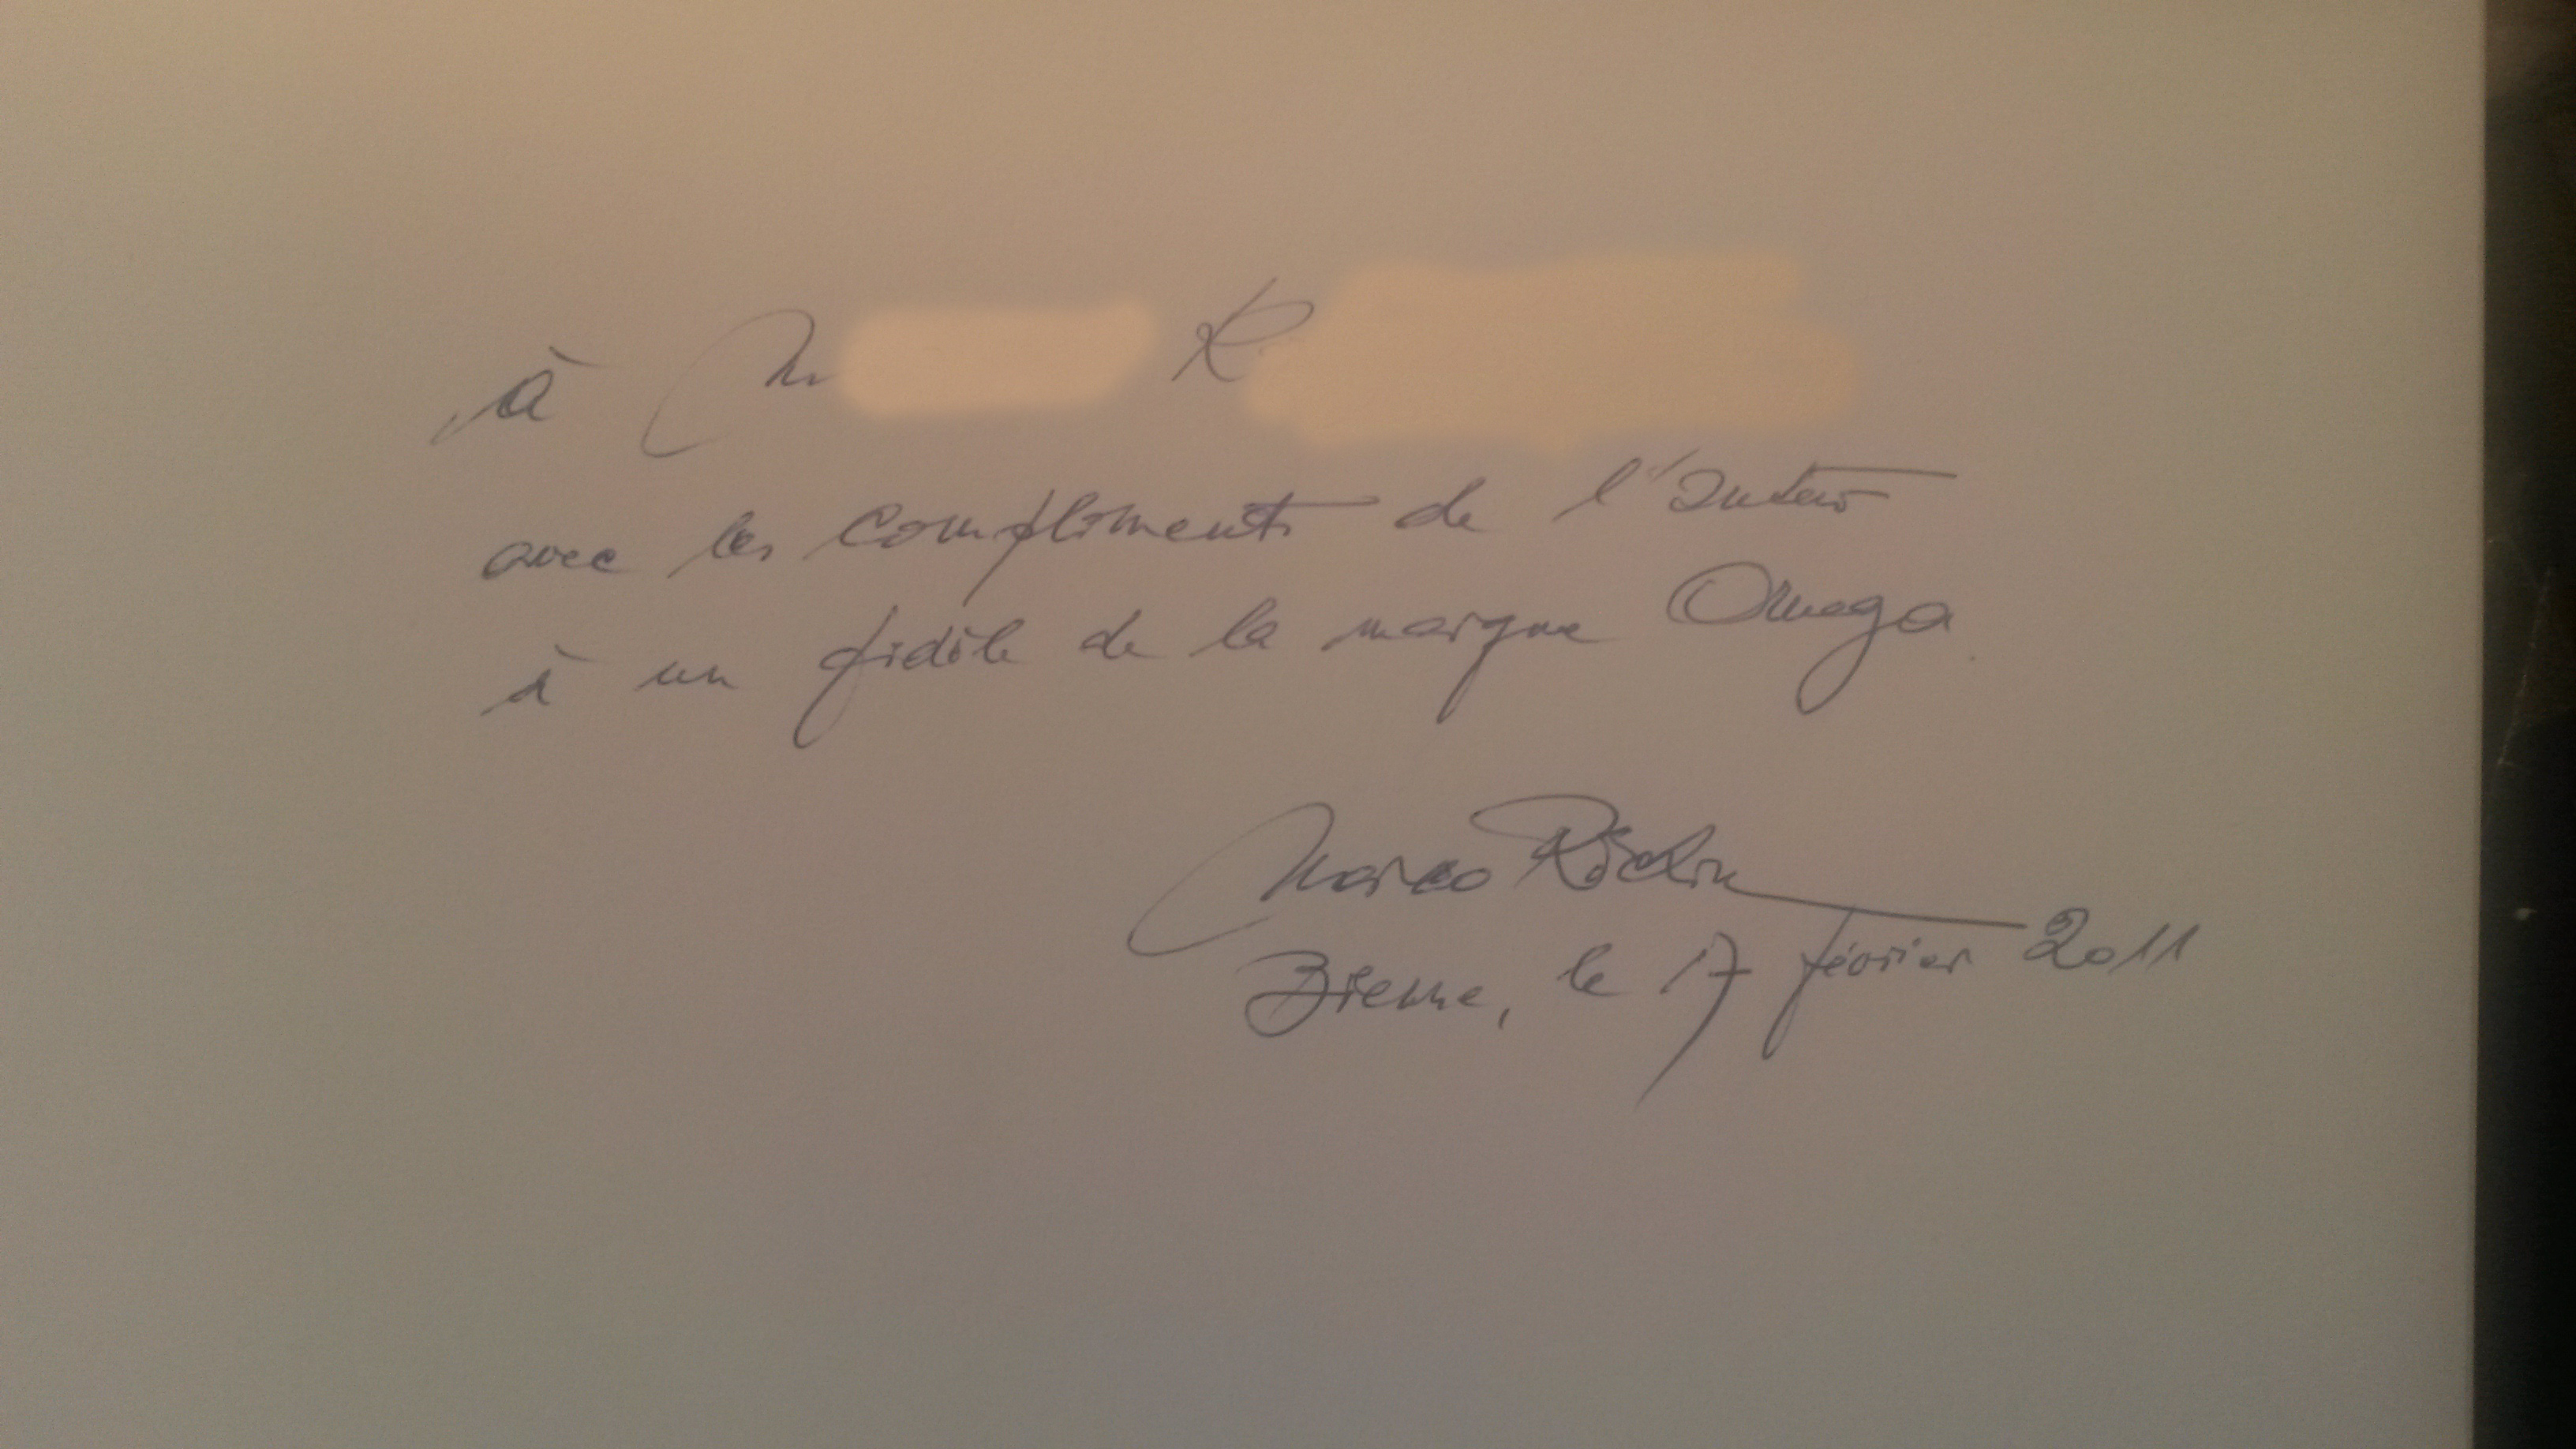 à M R
avec les compliments de l'Auteur
à un fidèle de la marque Omega
Marco Richon
Bienne, le 17 février 2011